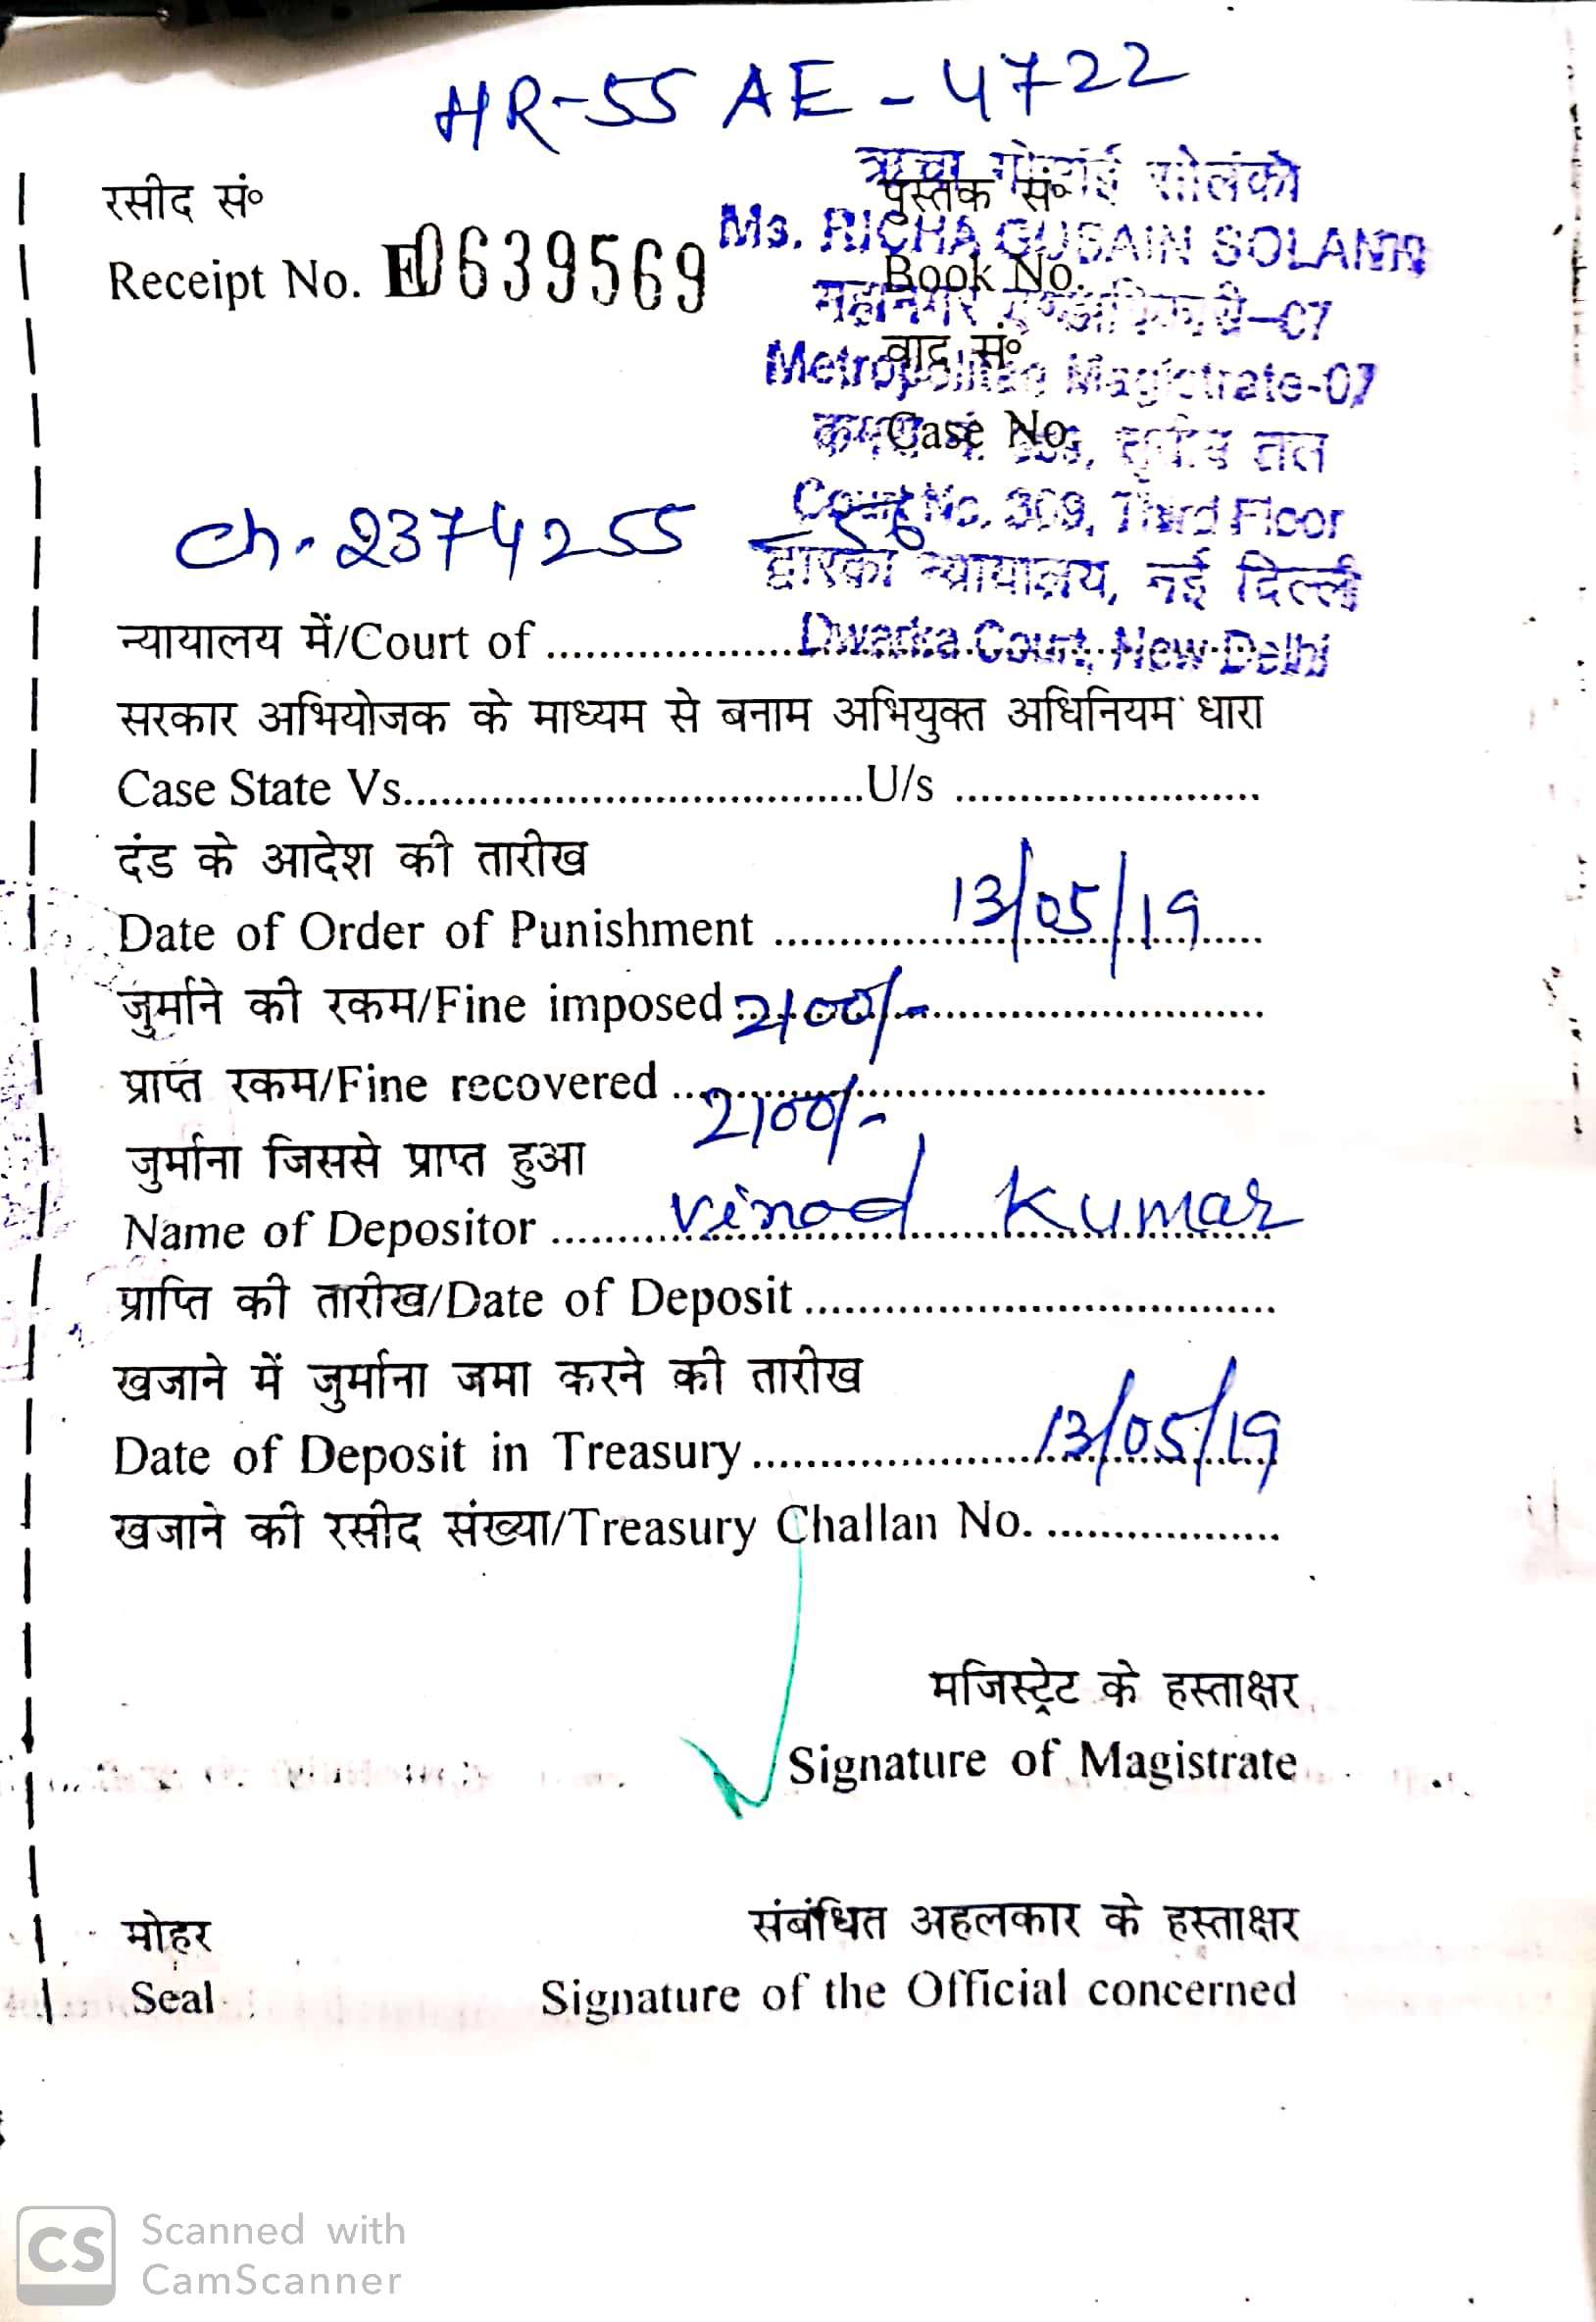 HR-55 AE-4722
रसीद सं॰ पुस्तक सं॰
सोलंकी
Receipt No. E0639569 Book No.
Ms. RICHA GUSAIN SOLANKI
महानगर दण्डाधिकारी-07
वाद सं॰
Metropolitan Magistrate-07
Case No.
तृतीय तल
Court No. 309, Third Floor
Ch. 2374255
द्वारका न्यायालय, नई दिल्ली
न्यायालय में/Court of ..................... Dwarka Court, New Delhi
सरकार अभियोजक के माध्यम से बनाम अभियुक्त अधिनियम धारा
Case State Vs....................................U/s ........................
दंड के आदेश की तारीख
Date of Order of Punishment 13/05/19
जुर्माने की रकम/Fine imposed 2100/-
प्राप्त रकम/Fine recovered 2100/-
जुर्माना जिससे प्राप्त हुआ
Name of Depositor Vinod Kumar
प्राप्ति की तारीख/Date of Deposit .....................................
खजाने में जुर्माना जमा करने की तारीख
Date of Deposit in Treasury 13/05/19
खजाने की रसीद संख्या/Treasury Challan No. ..................
मजिस्ट्रेट के हस्ताक्षर
Signature of Magistrate
मोहर संबंधित अहलकार के हस्ताक्षर
Seal Signature of the Official concerned
CS Scanned with
CamScanner